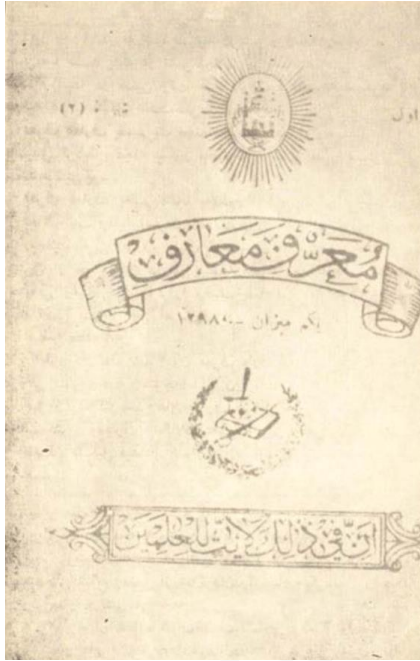 اول شماره (۲)
مُعَرِّف مَعَارِف
یکم میزان - ۱۲۹۸
اِنَّ فِی ذٰلِكَ لَاٰیٰتٍ لِلْعٰلِمِیْنَ